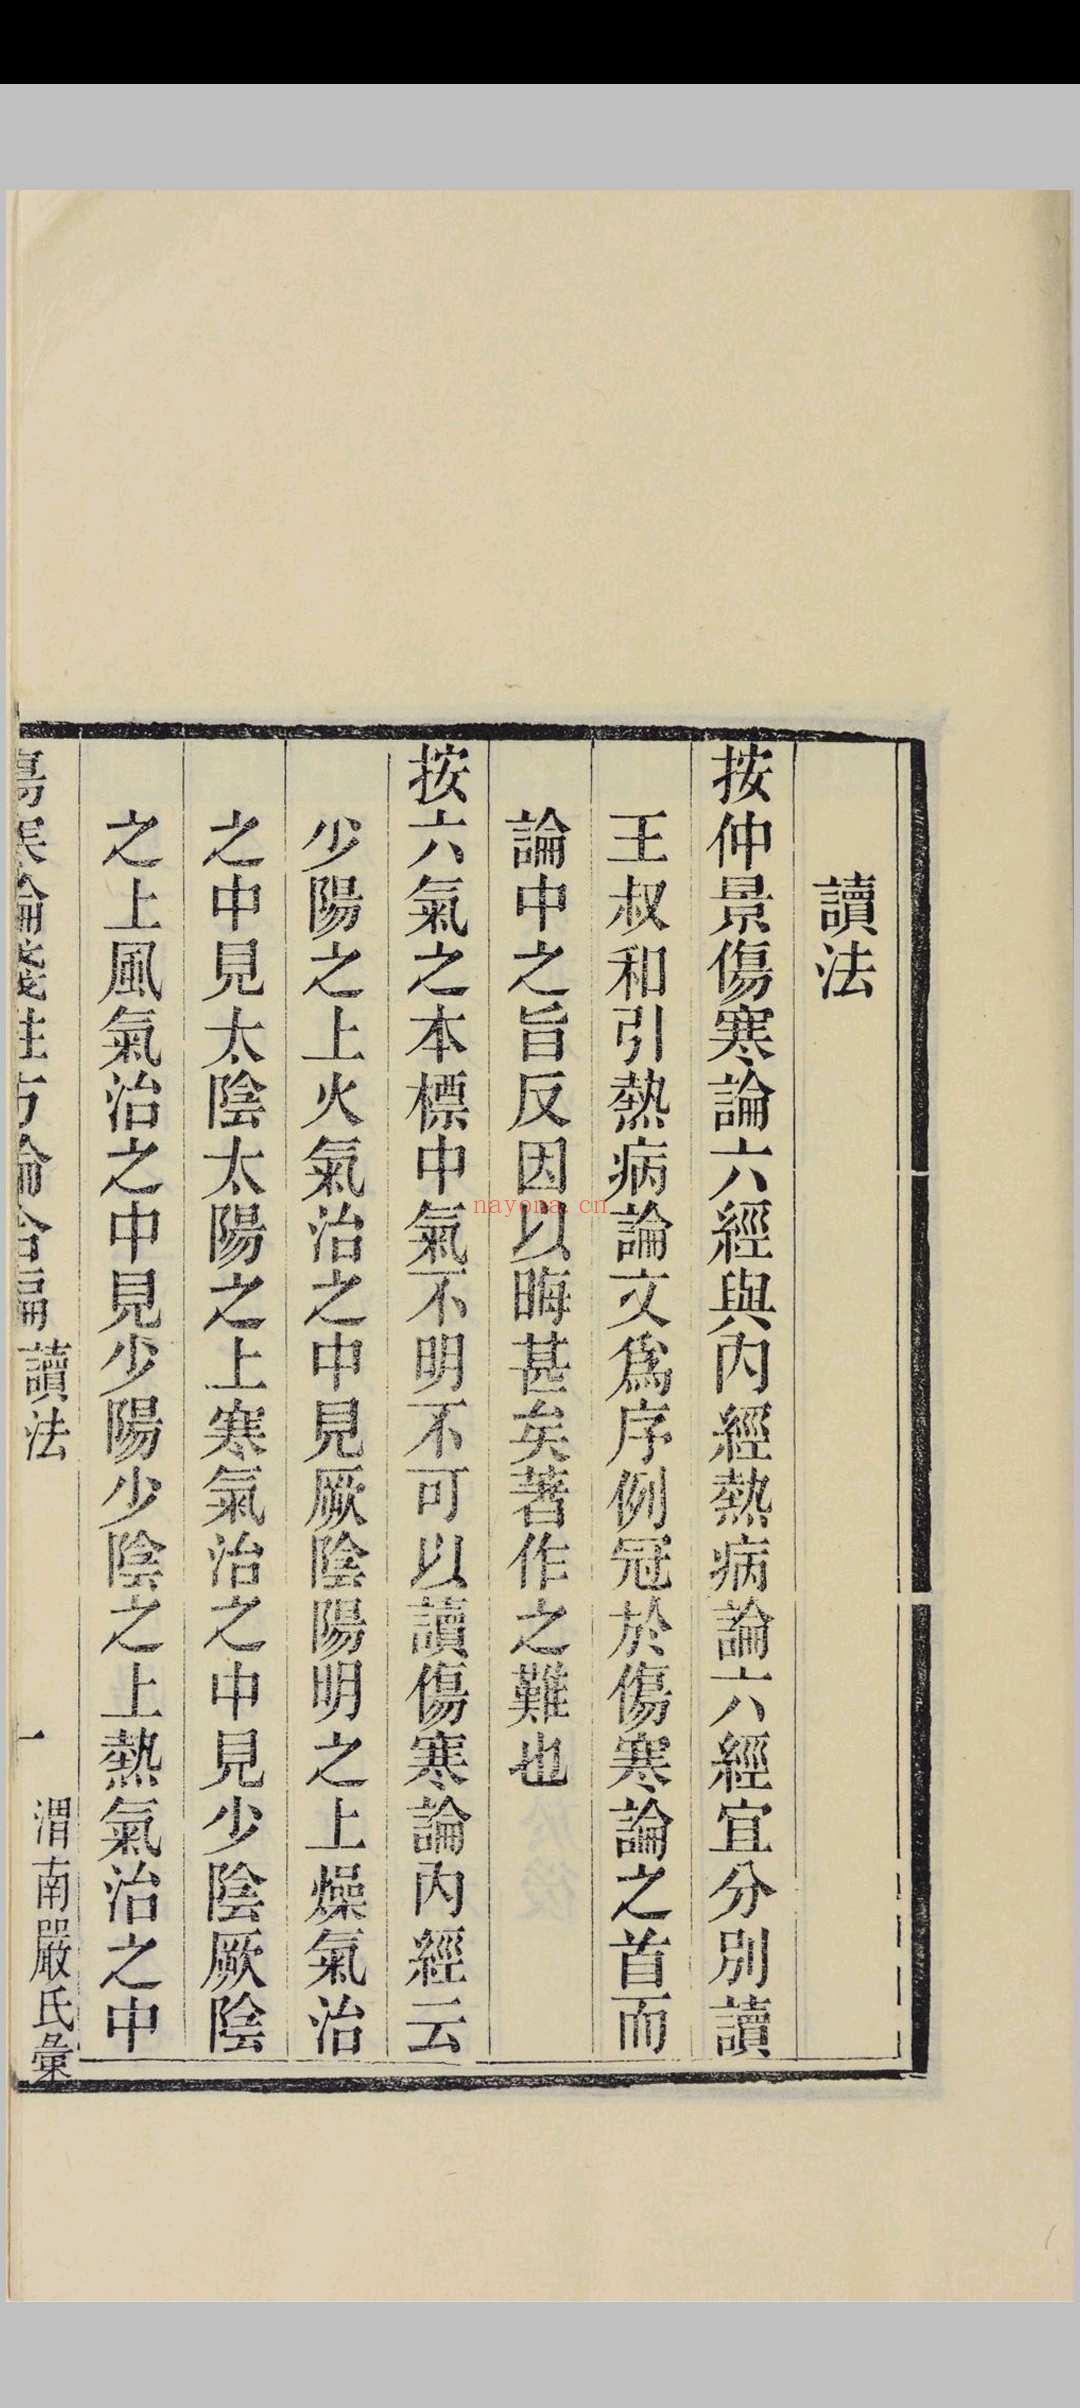 讀法
按仲景傷寒論六經與內經熱病論六經宜分別讀
王叔和引熱病論文爲序例冠於傷寒論之首而
論中之旨反因以晦甚矣著作之難也
按六氣之本標中氣不明不可以讀傷寒論內經云
少陽之上火氣治之中見厥陰陽明之上燥氣治
之中見太陰太陽之上寒氣治之中見少陰厥陰
之上風氣治之中見少陽少陰之上熱氣治之中
傷寒論淺註方論合編 讀法 一 渭南嚴氏彙
nayona.cn